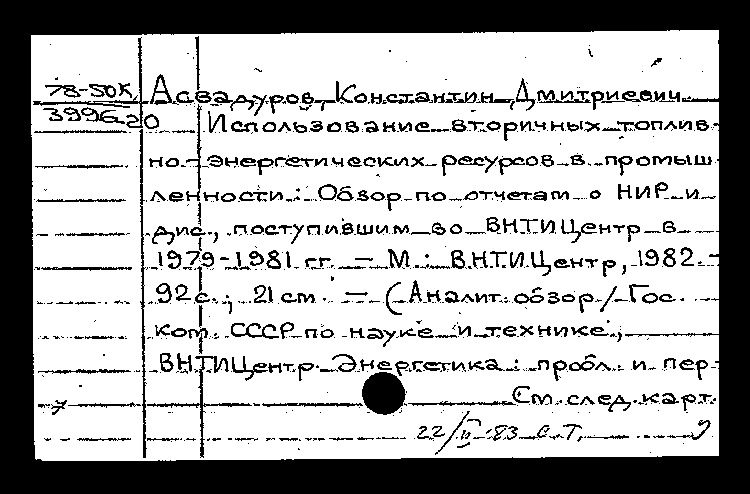 78-50К Асвадуров, Константин Дмитриевич
3996-20 Использование вторичных топлив-
но-энергетических ресурсов в промыш
ленности: Обзор по отчетам о НИР и
дис., поступившим во ВНТИЦентр в
1979-1981 гг. — М.: ВНТИЦентр, 1982. -
92 с.; 21 см. — (Аналит. обзор / Гос.
ком. СССР по науке и технике,
ВНТИЦентр. Энергетика: пробл. и пер-
См. след. карт.
22/II-83 С.Т.